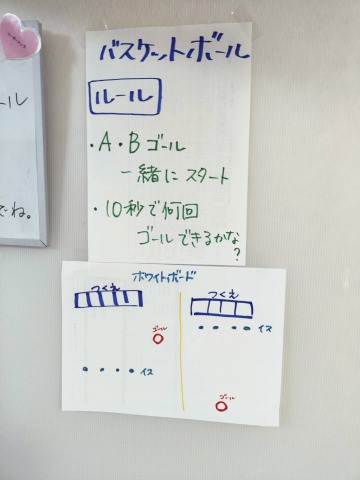 バスケットボール
ルール
・A・Bゴール
一緒に スタート
・10秒で何回
ゴールできるかな?
ホワイトボード
つくえ
つくえ
ゴール
イス
イス
ゴール
ール
でね。